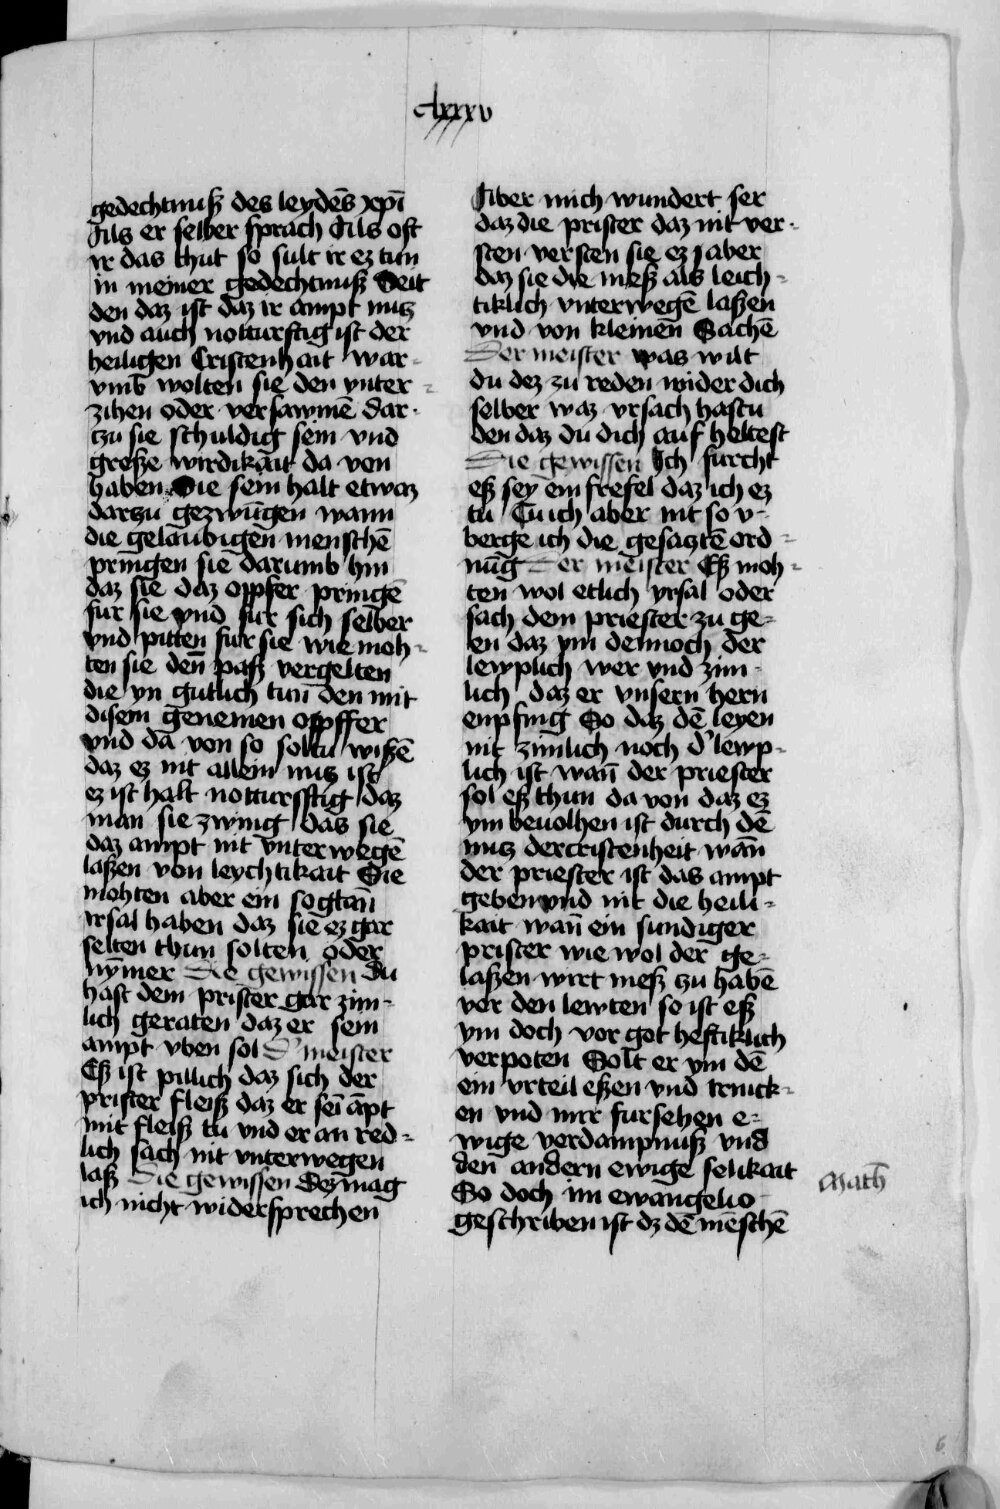 clxxxv
gedechtnuß des leydēs xp̄i
Als er selber sprach Als oft
ir das thut so sult ir ez tun
in meiner gedechtnuß Seit
den daz ist daz ir ampt nutz
vnd auch notturftig ist der
heiligen Cristenhait war-
vmb wolten sie den vnter-
zihen oder versawmē dar-
tzu sie schuldig sein vnd
große wirdikait da von
haben Die sein halt etwaz
dartzu gezwūgen wann
die gelaubigen menschē
pringen sie darumb hin
daz sie daz opfer pringē
fur sie vnd fur sich selber
vnd pitten fur sie wie moh-
ten sie deñ paß vergelten
die yn gutlich tun den mit
disem genemen opffer
vnd da von so soltu wißē
daz ez nit allein nutz ist
ez ist halt notturfftig daz
man sie zwing das sie
daz ampt nit vnterwegē
laßen von leychtikait Sie
mohten aber ein sogtan
vrsal haben daz sie ez gar
selten thun solten oder
nȳmer Die gewissen du
hast dem prister gar zim-
lich geraten daz er sein
ampt vben sol D' meister
Eß ist pillich daz sich der
prister fleiß daz er sei āpt
mit fleiß tu vnd er an red-
lich sach nit vnterwegen
laß Die gewissen Dez mag
ich nicht widersprechen
Aber mich wundert ser
daz die prister daz nit ver-
sten versten sie ez aber
daz sie die meß als leich-
tiklich vnterwegē laßen
vnd von kleinen Sachē
Der meister was wilt
du dez zu reden wider dich
selber waz vrsach hastu
den daz du dich auf heltest
Die gewissen Ich furcht
eß sey ein frefel daz ich ez
tu Tu ich aber nit so v-
berge ich die gesatztē ord-
nūg Der meister Eß moh-
ten wol etlich vrsal oder
sach dem priester zu ge-
en daz ym dennoch der
lewplich wer vnd zim-
lich daz er vnsern hern
enpfing So daz dē leyen
nit zimlich noch d' lewp-
lich ist wañ der priester
sol eß thun da von daz ez
ym beuolhen ist durch dē
nutz der cristenheit wāñ
der priester ist das ampt
geben vnd nit die heili-
kait wañ ein sundiger
prister wie wol der ge-
laßen wirt meß zu habē
vor den lewten so ist eß
ym doch vor got heftiklich
verpoten Solt er ym dē
ein vrteil eßen vnd trinck-
en vnd mir fursehen e-
wige verdampnuß vnd
den andern ewige selikait
So doch im ewangelio
geschriben ist dz dē mēschē
Math̄
6